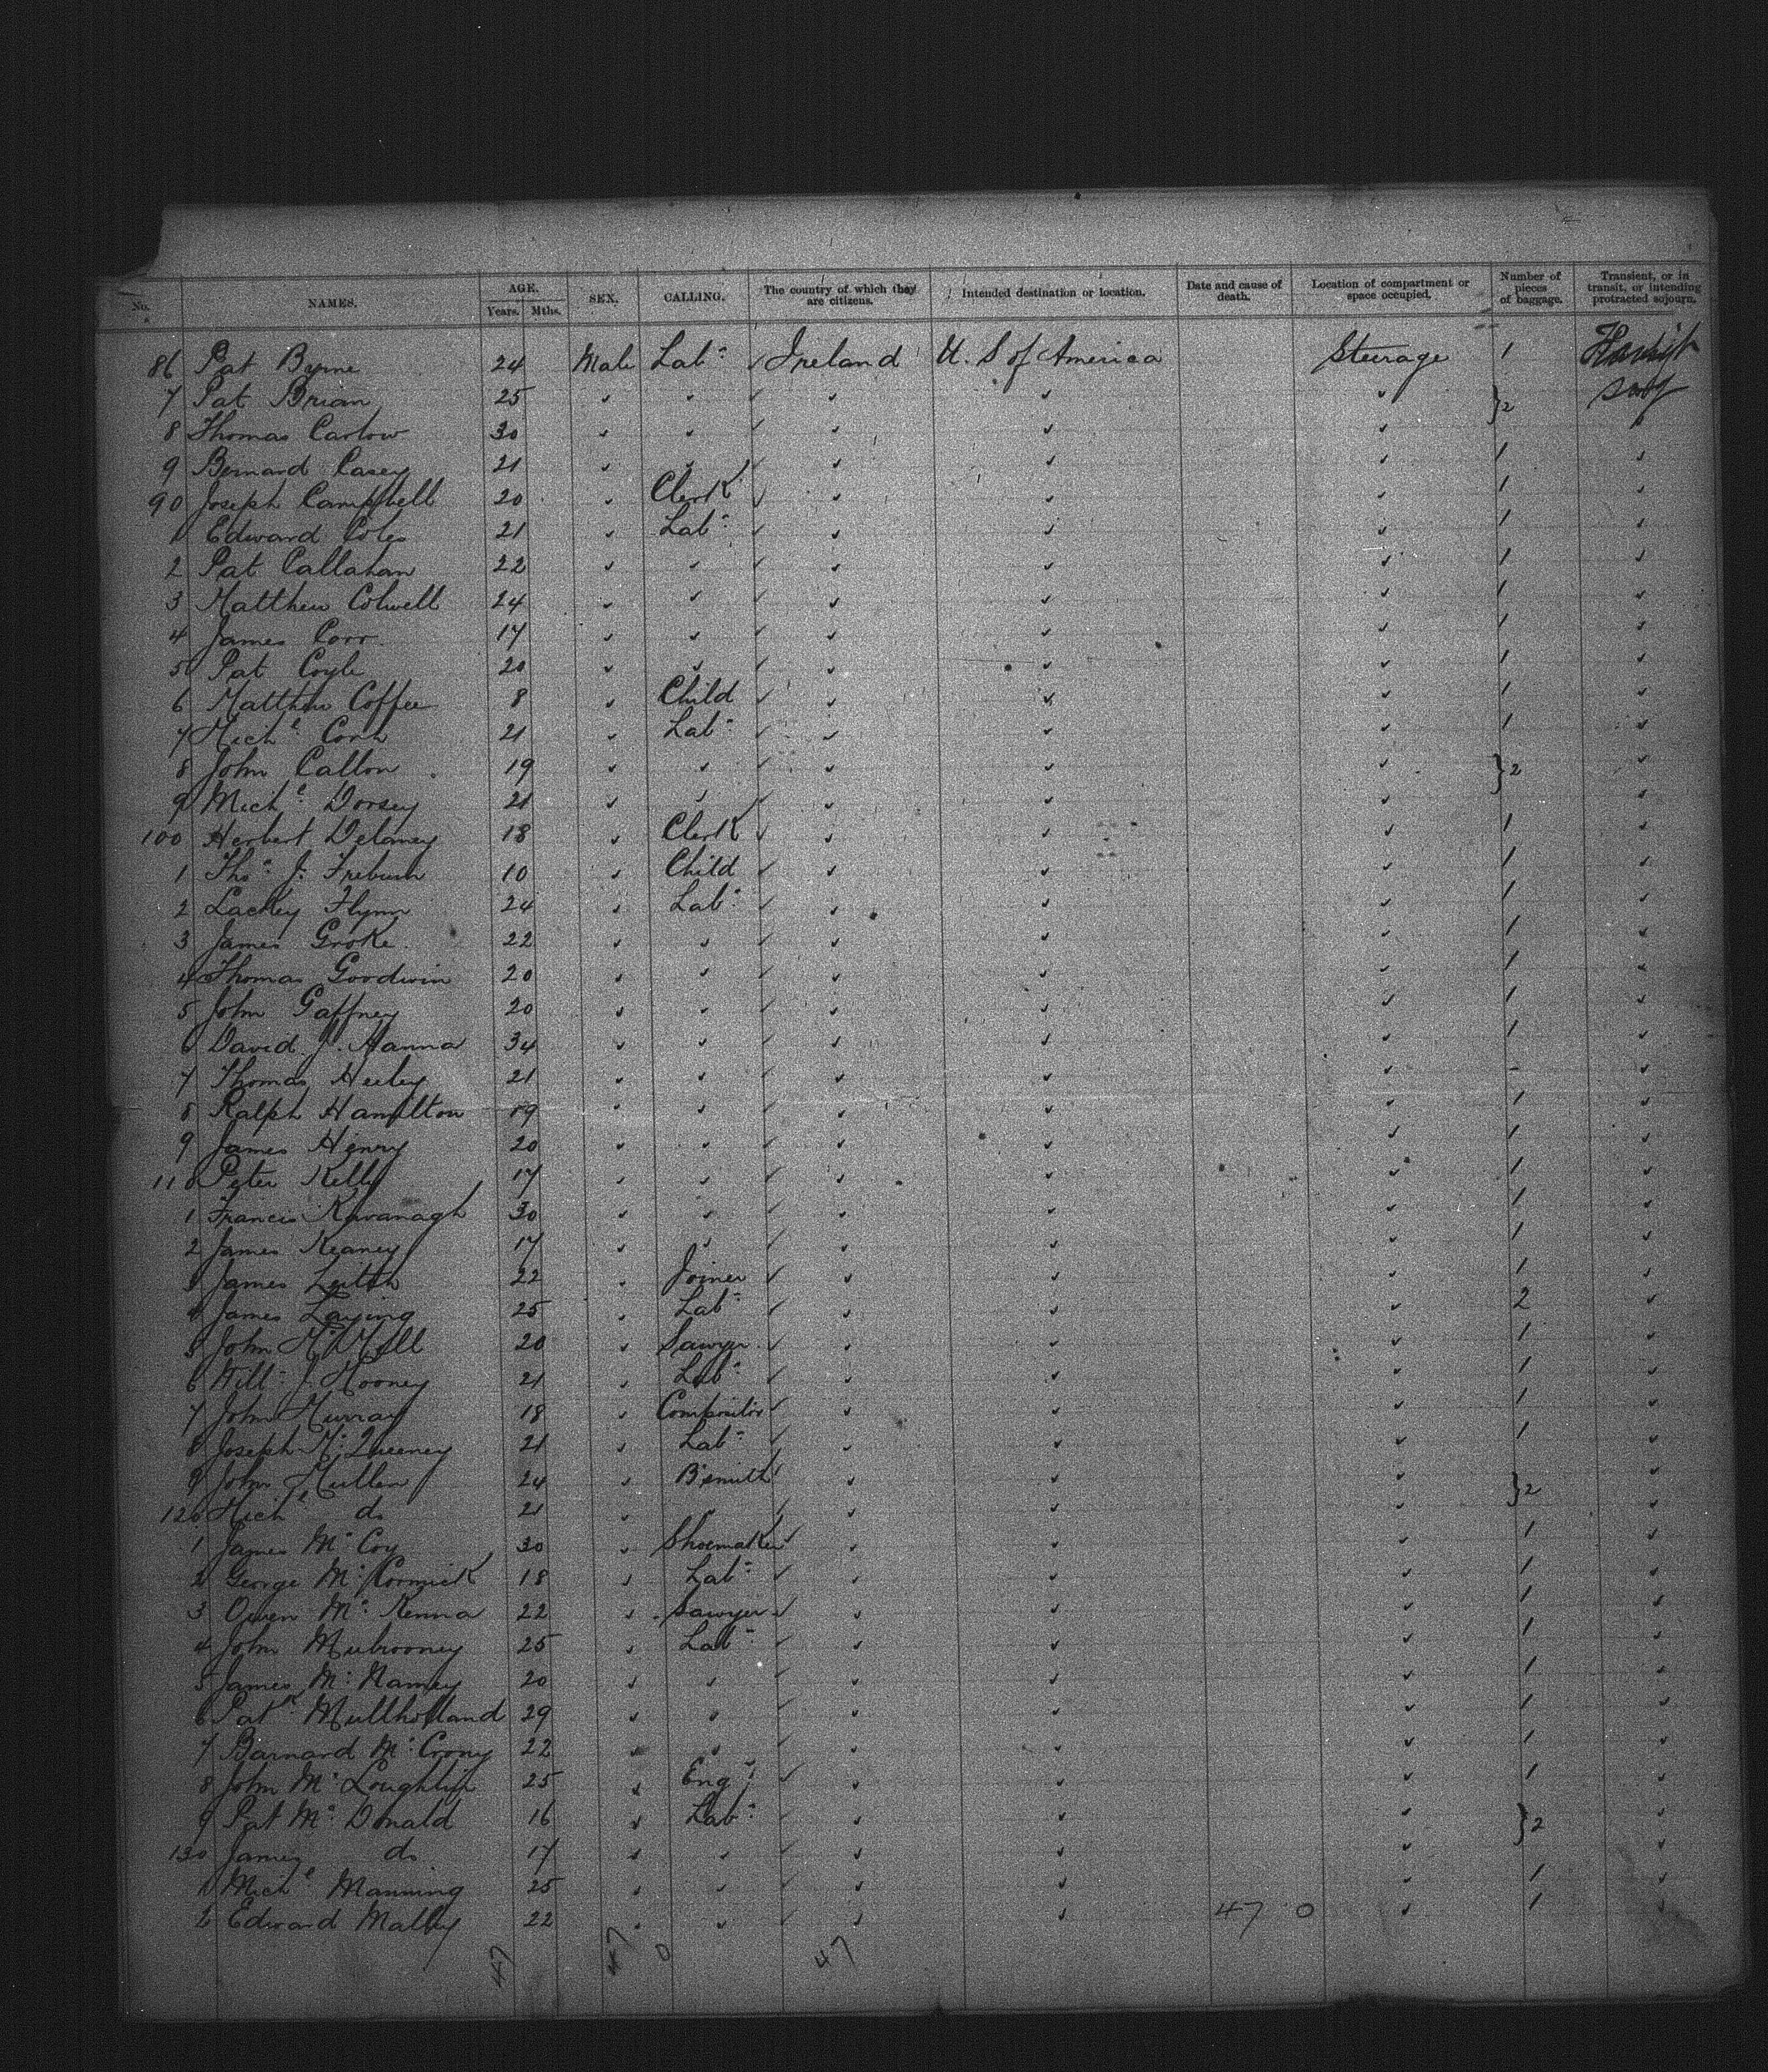 No. NAMES. AGE. Years. Mths. SEX. CALLING. The country of which they are citizens. Intended destination or location. Date and cause of death. Location of compartment or space occupied. Number of pieces of baggage. Transient, or in transit, or intending protracted sojourn.
86 Pat Byrne 24 Male Labr Ireland U. S of America Steerage 1
7 Pat Brian 25 ✓ ✓ ✓ ✓ ✓ ✓ } 2
8 Thomas Carlow 30 ✓ ✓ ✓ ✓ ✓ ✓
9 Bernard Casey 21 ✓ ✓ ✓ ✓ ✓ ✓ 1 ✓
90 Joseph Campbell 20 ✓ Clerk ✓ ✓ ✓ ✓ 1 ✓
1 Edward Coles 21 ✓ Labr ✓ ✓ ✓ ✓ 1 ✓
2 Pat Callahan 22 ✓ ✓ ✓ ✓ ✓ ✓ 1 ✓
3 Matthew Colwell 24 ✓ ✓ ✓ ✓ ✓ ✓ 1 ✓
4 James Corr 17 ✓ ✓ ✓ ✓ ✓ ✓ 1 ✓
5 Pat Coyle 20 ✓ ✓ ✓ ✓ ✓ ✓ 1 ✓
6 Matthew Coffee 8 ✓ Child ✓ ✓ ✓ ✓ 1 ✓
7 Michl 21 ✓ Labr ✓ ✓ ✓ ✓ 1 ✓
8 John Callon 19 ✓ ✓ ✓ ✓ ✓ ✓ } 2 ✓
9 Michl Dorsey 21 ✓ ✓ ✓ ✓ ✓ ✓ ✓
100 Herbert Delaney 18 ✓ Clerk ✓ ✓ ✓ ✓ 1 ✓
1 Thos J. 10 ✓ Child ✓ ✓ ✓ ✓ 1 ✓
2 Lackey Flynn 24 ✓ Labr ✓ ✓ ✓ ✓ 1 ✓
3 James Groke 22 ✓ ✓ ✓ ✓ ✓ ✓ 1 ✓
4 Thomas Goodwin 20 ✓ ✓ ✓ ✓ ✓ ✓ 1 ✓
5 John Gaffney 20 ✓ ✓ ✓ ✓ ✓ ✓ 1 ✓
6 David J. Hanna 34 ✓ ✓ ✓ ✓ ✓ ✓ 1 ✓
7 Thomas Heeley 21 ✓ ✓ ✓ ✓ ✓ ✓ - ✓
8 Ralph Hamilton 19 ✓ ✓ ✓ ✓ ✓ ✓ 1 ✓
9 James Henry 20 ✓ ✓ ✓ ✓ ✓ ✓ 1 ✓
110 Peter Kelly 17 ✓ ✓ ✓ ✓ ✓ ✓ 1 ✓
1 Francis Kavanagh 30 ✓ ✓ ✓ ✓ ✓ ✓ 1 ✓
2 James Keaney 17 ✓ ✓ ✓ ✓ ✓ ✓ 1 ✓
3 James Leitch 22 ✓ Joiner ✓ ✓ ✓ ✓ 1 ✓
4 James Laying 25 ✓ Labr ✓ ✓ ✓ ✓ 2 ✓
5 John 20 ✓ Sawyer ✓ ✓ ✓ ✓ 1 ✓
6 Willm J. Mooney 21 ✓ Labr ✓ ✓ ✓ ✓ 1 ✓
7 John Murray 18 ✓ Compositor ✓ ✓ ✓ ✓ 1 ✓
8 Joseph Mc Queeney 21 ✓ Labr ✓ ✓ ✓ ✓ 1 ✓
9 John Mullen 24 ✓ B'smith ✓ ✓ ✓ ✓ } 2 ✓
120 Michl do 21 ✓ ✓ ✓ ✓ ✓ ✓ ✓
1 James Mc Coy 30 ✓ Shoemaker ✓ ✓ ✓ ✓ 1 ✓
2 George Mc Cormick 18 ✓ Labr ✓ ✓ ✓ ✓ 1 ✓
3 Owen Mc Kenna 22 ✓ Sawyer ✓ ✓ ✓ ✓ 1 ✓
4 John Mulrooney 25 ✓ Labr ✓ ✓ ✓ ✓ 1 ✓
5 James Mc Namey 20 ✓ ✓ ✓ ✓ ✓ ✓ 1 ✓
6 Patk Mullholland 29 ✓ ✓ ✓ ✓ ✓ ✓ 1 ✓
7 Barnard Mc Crony 22 ✓ ✓ ✓ ✓ ✓ ✓ 1 ✓
8 John Mc Loughlin 25 ✓ Engr ✓ ✓ ✓ ✓ 1 ✓
9 Pat Mc Donald 16 ✓ Labr ✓ ✓ ✓ ✓ } 2 ✓
130 James do 17 ✓ ✓ ✓ ✓ ✓ ✓ ✓
1 Michl Manning 25 ✓ ✓ ✓ ✓ ✓ ✓ 1 ✓
2 Edward Malley 22 ✓ ✓ ✓ ✓ ✓ 47 0 ✓ 1 ✓
47 47 0 47